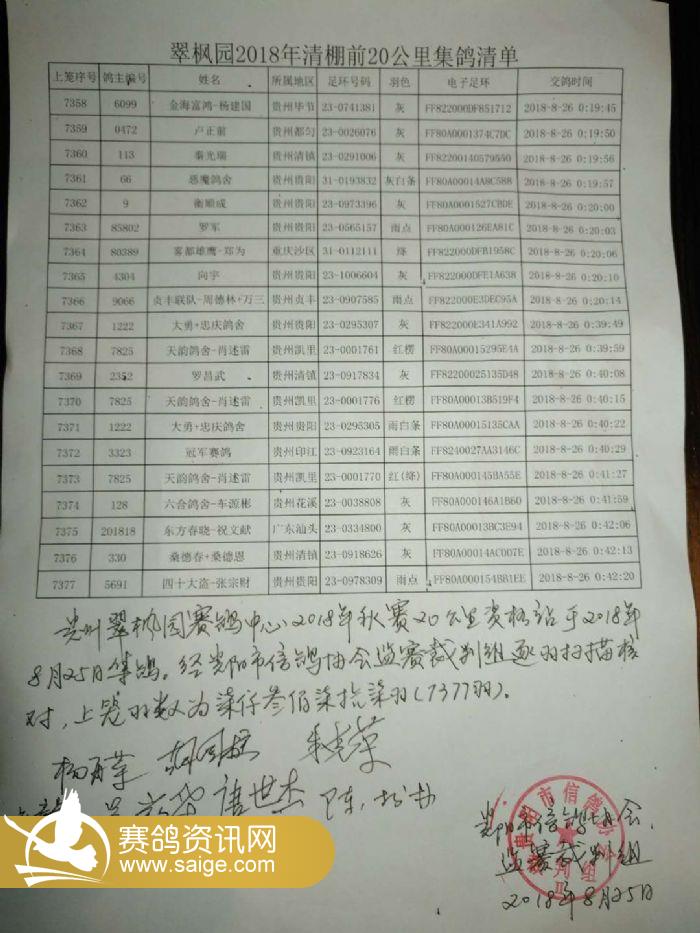 翠枫园2018年清棚前20公里集鸽清单
上笼序号 鸽主编号 姓名 所属地区 足环号码 羽色 电子足环 交鸽时间
7358 6099 金海富鸿-杨建国 贵州毕节 23-0741381 灰 FF822000DF851712 2018-8-26 0:19:45
7359 0472 卢正前 贵州都匀 23-0026076 灰 FF80A0001374C7DC 2018-8-26 0:19:50
7360 113 秦光瑞 贵州清镇 23-0291006 灰 FF82200140579550 2018-8-26 0:19:56
7361 66 恶魔鸽舍 贵州贵阳 31-0193832 灰白条 FF80A00014A8C588 2018-8-26 0:19:57
7362 9 衡顺成 贵州贵阳 23-0973396 灰 FF80A0001527CBDE 2018-8-26 0:20:00
7363 85802 罗军 贵州贵阳 23-0565157 雨点 FF80A000126EA81C 2018-8-26 0:20:03
7364 80389 雾都雄鹰-郑为 重庆沙区 31-0112111 绛 FF822000DFB1958C 2018-8-26 0:20:06
7365 4304 向宇 贵州贵阳 23-1006604 灰 FF822000DFE1A638 2018-8-26 0:20:10
7366 9066 贞丰联队-周德林+万三 贵州贞丰 23-0907585 雨点 FF822000E3DEC95A 2018-8-26 0:20:14
7367 1222 大勇+忠庆鸽舍 贵州贵阳 23-0295307 灰 FF822000E341A992 2018-8-26 0:39:49
7368 7825 天韵鸽舍-肖述雷 贵州凯里 23-0001761 红楞 FF80A00015295E4A 2018-8-26 0:39:59
7369 2352 罗昌武 贵州清镇 23-0917834 灰 FF82200025135D48 2018-8-26 0:40:08
7370 7825 天韵鸽舍-肖述雷 贵州凯里 23-0001776 红楞 FF80A00013B519F4 2018-8-26 0:40:15
7371 1222 大勇+忠庆鸽舍 贵州贵阳 23-0295305 雨白条 FF80A00015135CAA 2018-8-26 0:40:22
7372 3323 冠军赛鸽 贵州印江 23-0923164 雨白条 FF8240027AA3146C 2018-8-26 0:40:29
7373 7825 天韵鸽舍-肖述雷 贵州凯里 23-0001770 红(绛) FF80A000145BA55E 2018-8-26 0:41:27
7374 128 六合鸽舍-车源彬 贵州花溪 23-0038808 灰 FF80A000146A1B60 2018-8-26 0:41:59
7375 201818 东方春晓-祝文献 广东汕头 23-0334800 灰 FF80A00013BC3E94 2018-8-26 0:42:06
7376 330 桑德春+桑德恩 贵州清镇 23-0918626 灰 FF80A00014AC007E 2018-8-26 0:42:13
7377 5691 四十大盗-张宗财 贵州贵阳 23-0978309 雨点 FF80A000154BB1EE 2018-8-26 0:42:20
贵州翠枫园赛鸽中心2018年秋赛20公里资格站于2018年
8月25日集鸽。经贵阳市信鸽协会监赛裁判组逐羽扫描核
对,上笼羽数为柒仟叁佰柒拾柒羽(7377羽)。
唐世杰
贵阳市信鸽协会
监赛裁判组
2018年8月25日
贵阳市信鸽协
赛鸽资讯网
www.saige.com